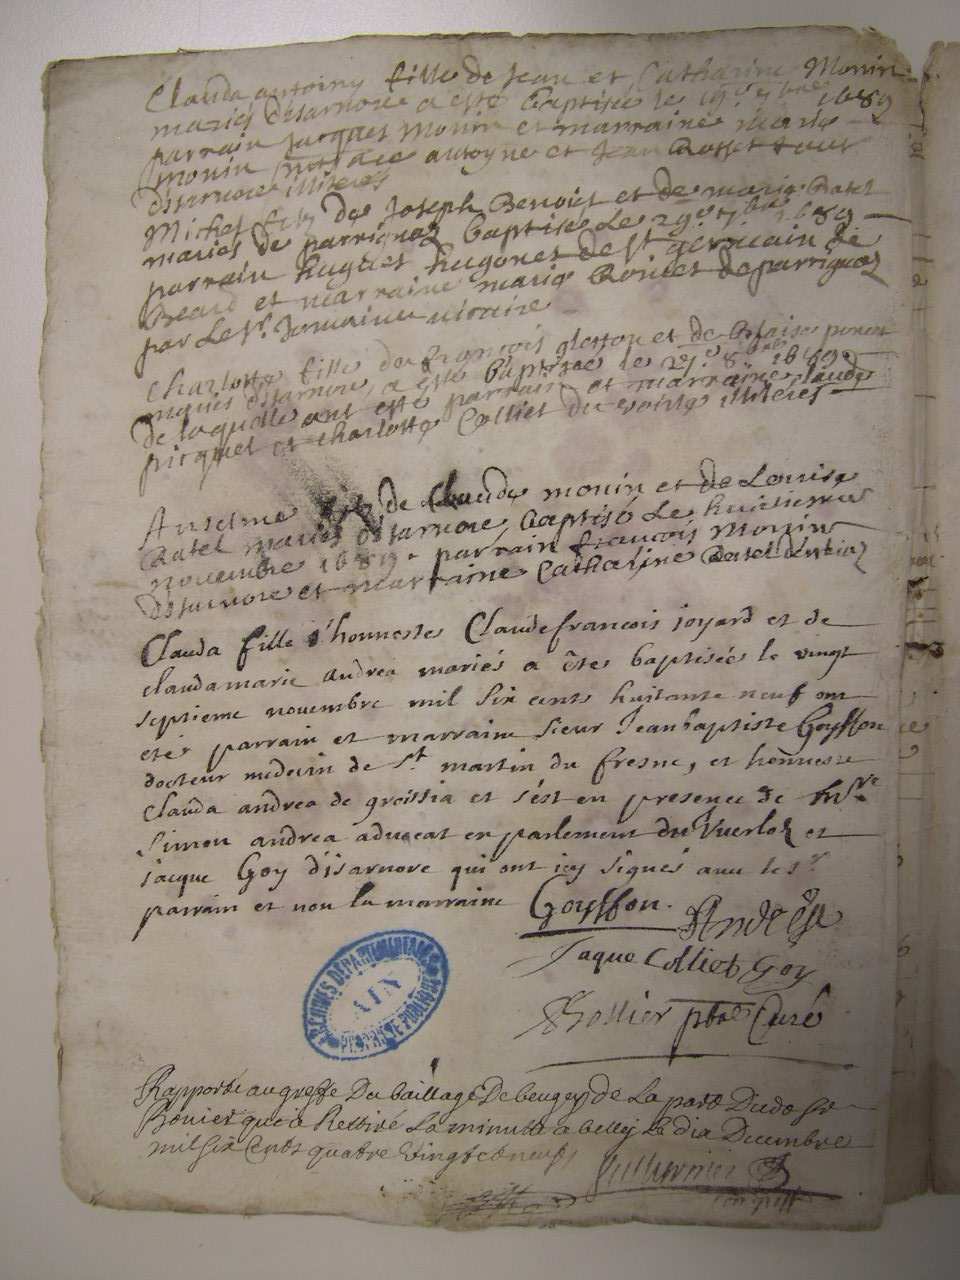 Clauda antoiny fille de Jean et Catharine Monin
mariés disarnore a esté baptisée le 19e 7bre 1689
parrain Jacques Monin et marraine marie
monin antoyne et Jean Rosset tous
disarnore illiteres
Michel filz de Joseph Benoict et de marie Ratel
mariés de parrignaz baptisé le 29e 7bre 1689
parrain huguet hugonet de st germain de
Beard et marraine marie Bonet de parrignaz
par le sr Jomain vicaire
Charlotte fille de françois gletton et de Blaise poncet
mariés disarnore, a esté baptisée le 27e 8bre 1689
de laquelle ont esté parrain et marraine claude
picquet et charlotte Colliet du illiteres
Anselme filz de Claude monin et de Louise
Ratel mariés disarnore baptisé le huictieme
novembre 1689 parrain francois Monin
disarnore et marraine Catharine Ratel
Clauda fille d'honneste Claude francois joyard et de
claudamarie andréa mariés a êtes baptisées le vingt
septieme novembre mil six cents huitante neuf ont
etés parrain et marraine sieur Jeanbaptiste Goyffon
docteur medecin de st martin du fresne, et honneste
clauda andrea de groissia et s'est en presence de
simon andréa advocat en parlement du et
jacque Goy disarnore qui ont icy signés avec le sr
parrain et non la marraine Goyffon. Andréa
Jaque Colliet Goy
Bollier pbre Curé
ARCHIVES DÉPARTEMENTALES
AIN
Rapporté au greffe Du bailliage De beugey de la part Dudt Sr
que à Rettiré la minutte a belley le dix Decembre
mil six Cents quatre vingt et neuf